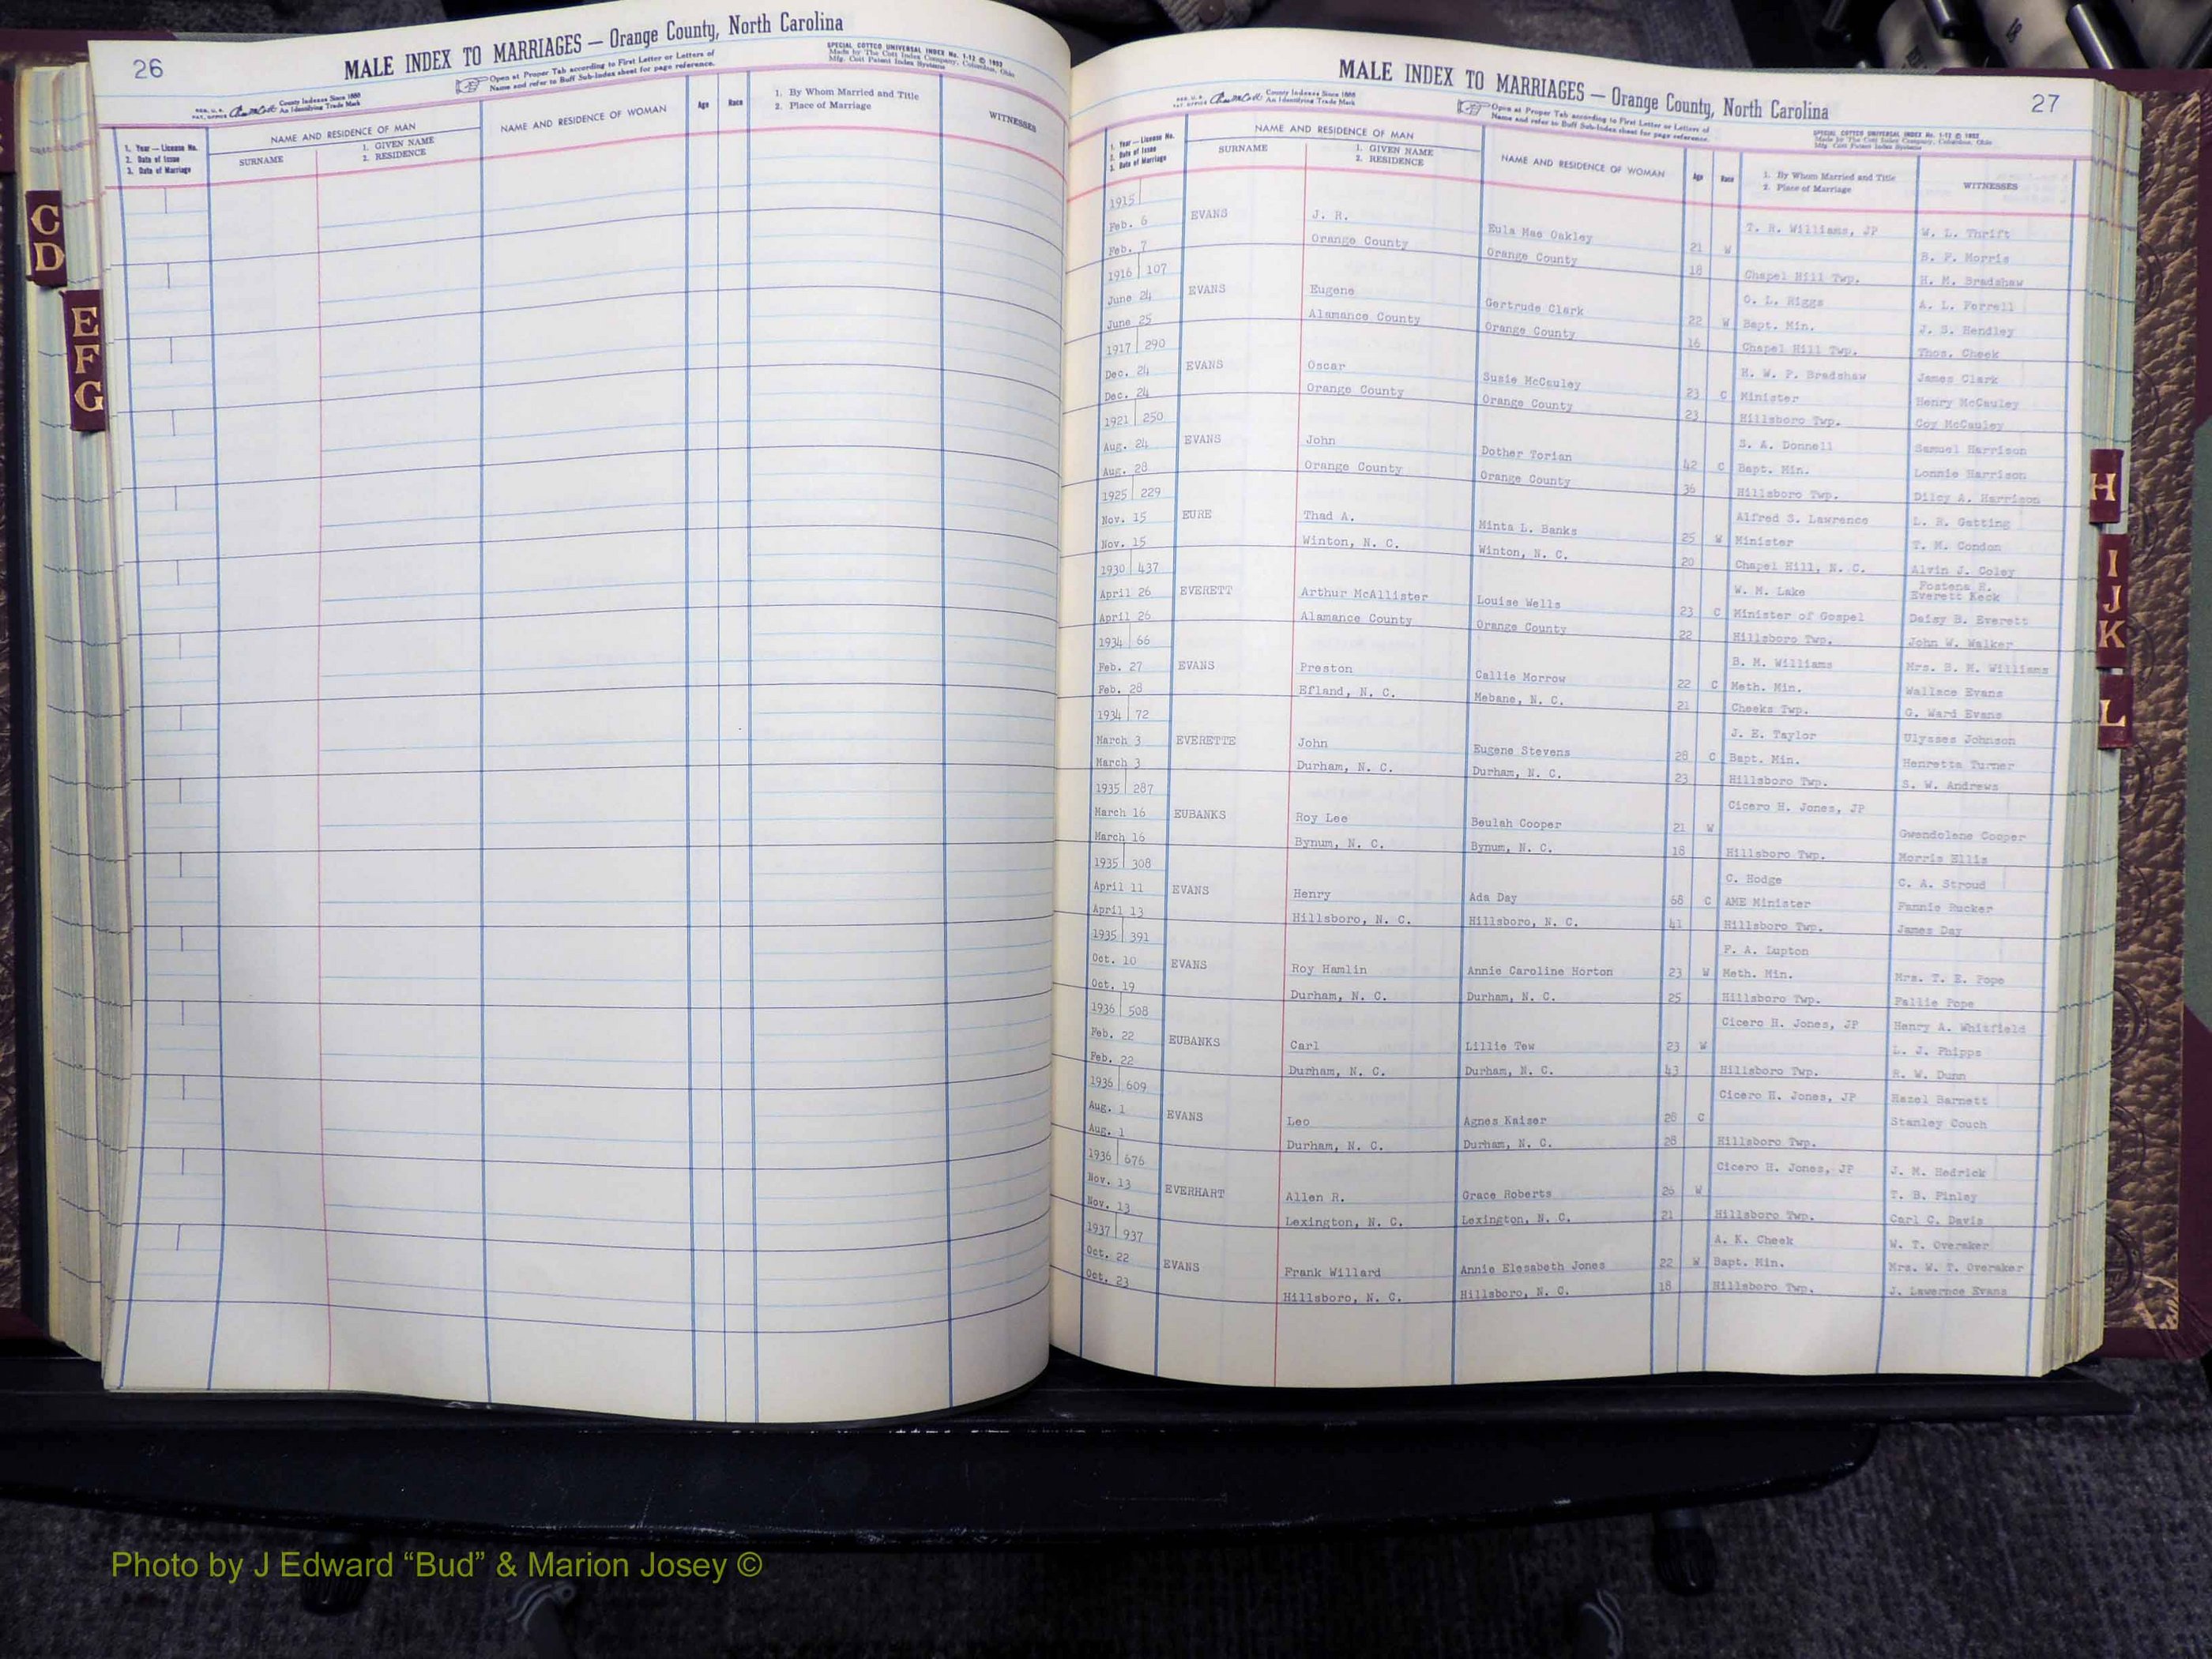 26
MALE INDEX TO MARRIAGES — Orange County, North Carolina
REG. U. S. PAT. OFFICE County Indexes Since 1888 An Identifying Trade Mark
Open at Proper Tab according to First Letter or Letters of
Name and refer to Buff Sub-Index sheet for page reference.
SPECIAL COTTCO UNIVERSAL INDEX No. 1-12 © 1952
Made by The Cott Index Company, Columbus, Ohio
Mfg. Cott Patent Index Systems
1. Year — License No.
2. Date of Issue
3. Date of Marriage
NAME AND RESIDENCE OF MAN
SURNAME
1. GIVEN NAME
2. RESIDENCE
NAME AND RESIDENCE OF WOMAN
Age
Race
1. By Whom Married and Title
2. Place of Marriage
WITNESSES
C
D
E
F
G
MALE INDEX TO MARRIAGES — Orange County, North Carolina
27
REG. U. S. PAT. OFFICE County Indexes Since 1888 An Identifying Trade Mark
Open at Proper Tab according to First Letter or Letters of
Name and refer to Buff Sub-Index sheet for page reference.
SPECIAL COTTCO UNIVERSAL INDEX No. 1-12 © 1952
Made by The Cott Index Company, Columbus, Ohio
Mfg. Cott Patent Index Systems
1. Year — License No.
2. Date of Issue
3. Date of Marriage
NAME AND RESIDENCE OF MAN
SURNAME
1. GIVEN NAME
2. RESIDENCE
NAME AND RESIDENCE OF WOMAN
Age
Race
1. By Whom Married and Title
2. Place of Marriage
WITNESSES
1915 T. R. Williams, JP W. L. Thrift
Feb. 6 EVANS J. R. Eula Mae Oakley 21 W B. F. Morris
Feb. 7 Orange County Orange County 18 Chapel Hill Twp. H. M. Bradshaw
1916 107 O. L. Riggs A. L. Ferrell
June 24 EVANS Eugene Gertrude Clark 22 W Bapt. Min. J. S. Hendley
June 25 Alamance County Orange County 16 Chapel Hill Twp. Thos. Cheek
1917 290 H. W. P. Bradshaw James Clark
Dec. 24 EVANS Oscar Susie McCauley 23 C Minister Henry McCauley
Dec. 24 Orange County Orange County 23 Hillsboro Twp. Coy McCauley
1921 250 S. A. Donnell Samuel Harrison
Aug. 24 EVANS John Dother Torian 42 C Bapt. Min. Lonnie Harrison
Aug. 28 Orange County Orange County 36 Hillsboro Twp. Dilcy A. Harrison
1925 229 Alfred S. Lawrence L. R. Gatting
Nov. 15 EURE Thad A. Minta L. Banks 25 W Minister T. M. Condon
Nov. 15 Winton, N. C. Winton, N. C. 20 Chapel Hill, N. C. Alvin J. Coley
1930 437 W. M. Lake Fostena H. Everett Keck
April 26 EVERETT Arthur McAllister Louise Wells 23 C Minister of Gospel Daisy B. Everett
April 26 Alamance County Orange County 22 Hillsboro Twp. John W. Walker
1934 66 B. M. Williams Mrs. B. M. Williams
Feb. 27 EVANS Preston Callie Morrow 22 C Meth. Min. Wallace Evans
Feb. 28 Efland, N. C. Mebane, N. C. 21 Cheeks Twp. G. Ward Evans
1934 72 J. E. Taylor Ulysses Johnson
March 3 EVERETTE John Eugene Stevens 28 C Bapt. Min. Henretta Turner
March 3 Durham, N. C. Durham, N. C. 23 Hillsboro Twp. S. W. Andrews
1935 287 Cicero H. Jones, JP
March 16 EUBANKS Roy Lee Beulah Cooper 21 W Gwendolene Cooper
March 16 Bynum, N. C. Bynum, N. C. 18 Hillsboro Twp. Morris Ellis
1935 308 C. Hodge C. A. Stroud
April 11 EVANS Henry Ada Day 68 C AME Minister Fannie Rucker
April 13 Hillsboro, N. C. Hillsboro, N. C. 41 Hillsboro Twp. James Day
1935 391 F. A. Lupton
Oct. 10 EVANS Roy Hamlin Annie Caroline Horton 23 W Meth. Min. Mrs. T. E. Pope
Oct. 19 Durham, N. C. Durham, N. C. 25 Hillsboro Twp. Fallie Pope
1936 508 Cicero H. Jones, JP Henry A. Whitfield
Feb. 22 EUBANKS Carl Lillie Tew 23 W L. J. Phipps
Feb. 22 Durham, N. C. Durham, N. C. 43 Hillsboro Twp. R. W. Dunn
1936 609 Cicero H. Jones, JP Hazel Barnett
Aug. 1 EVANS Leo Agnes Kaiser 28 C Stanley Couch
Aug. 1 Durham, N. C. Durham, N. C. 28 Hillsboro Twp.
1936 676 Cicero H. Jones, JP J. M. Hedrick
Nov. 13 EVERHART Allen R. Grace Roberts 26 W T. B. Finley
Nov. 13 Lexington, N. C. Lexington, N. C. 21 Hillsboro Twp. Carl C. Davis
1937 937 A. K. Cheek W. T. Overaker
Oct. 22 EVANS Frank Willard Annie Elesabeth Jones 22 W Bapt. Min. Mrs. W. T. Overaker
Oct. 23 Hillsboro, N. C. Hillsboro, N. C. 18 Hillsboro Twp. J. Lawernce Evans
H
I
J
K
L
Photo by J Edward “Bud” & Marion Josey ©